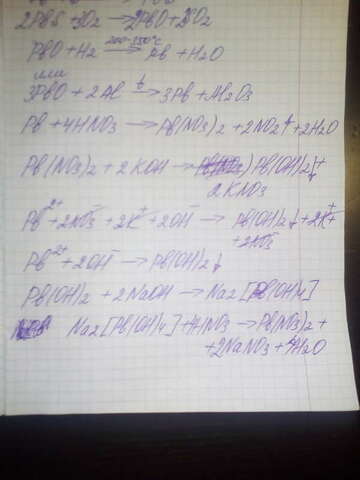 2PbS + 3O2 → 2PbO + 2SO2
PbO + H2 200-350°C → Pb + H2O
или
3PbO + 2Al t → 3Pb + Al2O3
Pb + 4HNO3 → Pb(NO3)2 + 2NO2↑ + 2H2O
Pb(NO3)2 + 2KOH → Pb(OH)2↓ +
2KNO3
Pb2+ + 2NO3- + 2K+ + 2OH- → Pb(OH)2↓ + 2K+
+ 2NO3-
Pb2+ + 2OH- → Pb(OH)2↓
Pb(OH)2 + 2NaOH → Na2[Pb(OH)4]
Na2[Pb(OH)4] + 4HNO3 → Pb(NO3)2 +
+ 2NaNO3 + 4H2O